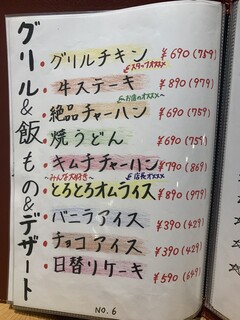 グリル&飯もの&デザート
・グリルチキン ¥690(759)
スタッフオススメ
・牛ステーキ ¥890(979)
お店のオススメ
・絶品チャーハン ¥690(759)
・焼うどん ¥690(759)
・キムチチャーハン ¥790(869)
〜みんな大好き〜 店長オススメ
・とろとろオムライス ¥890(979)
・バニラアイス ¥390(429)
・チョコアイス ¥390(429)
・日替りケーキ ¥590(649)
NO.6